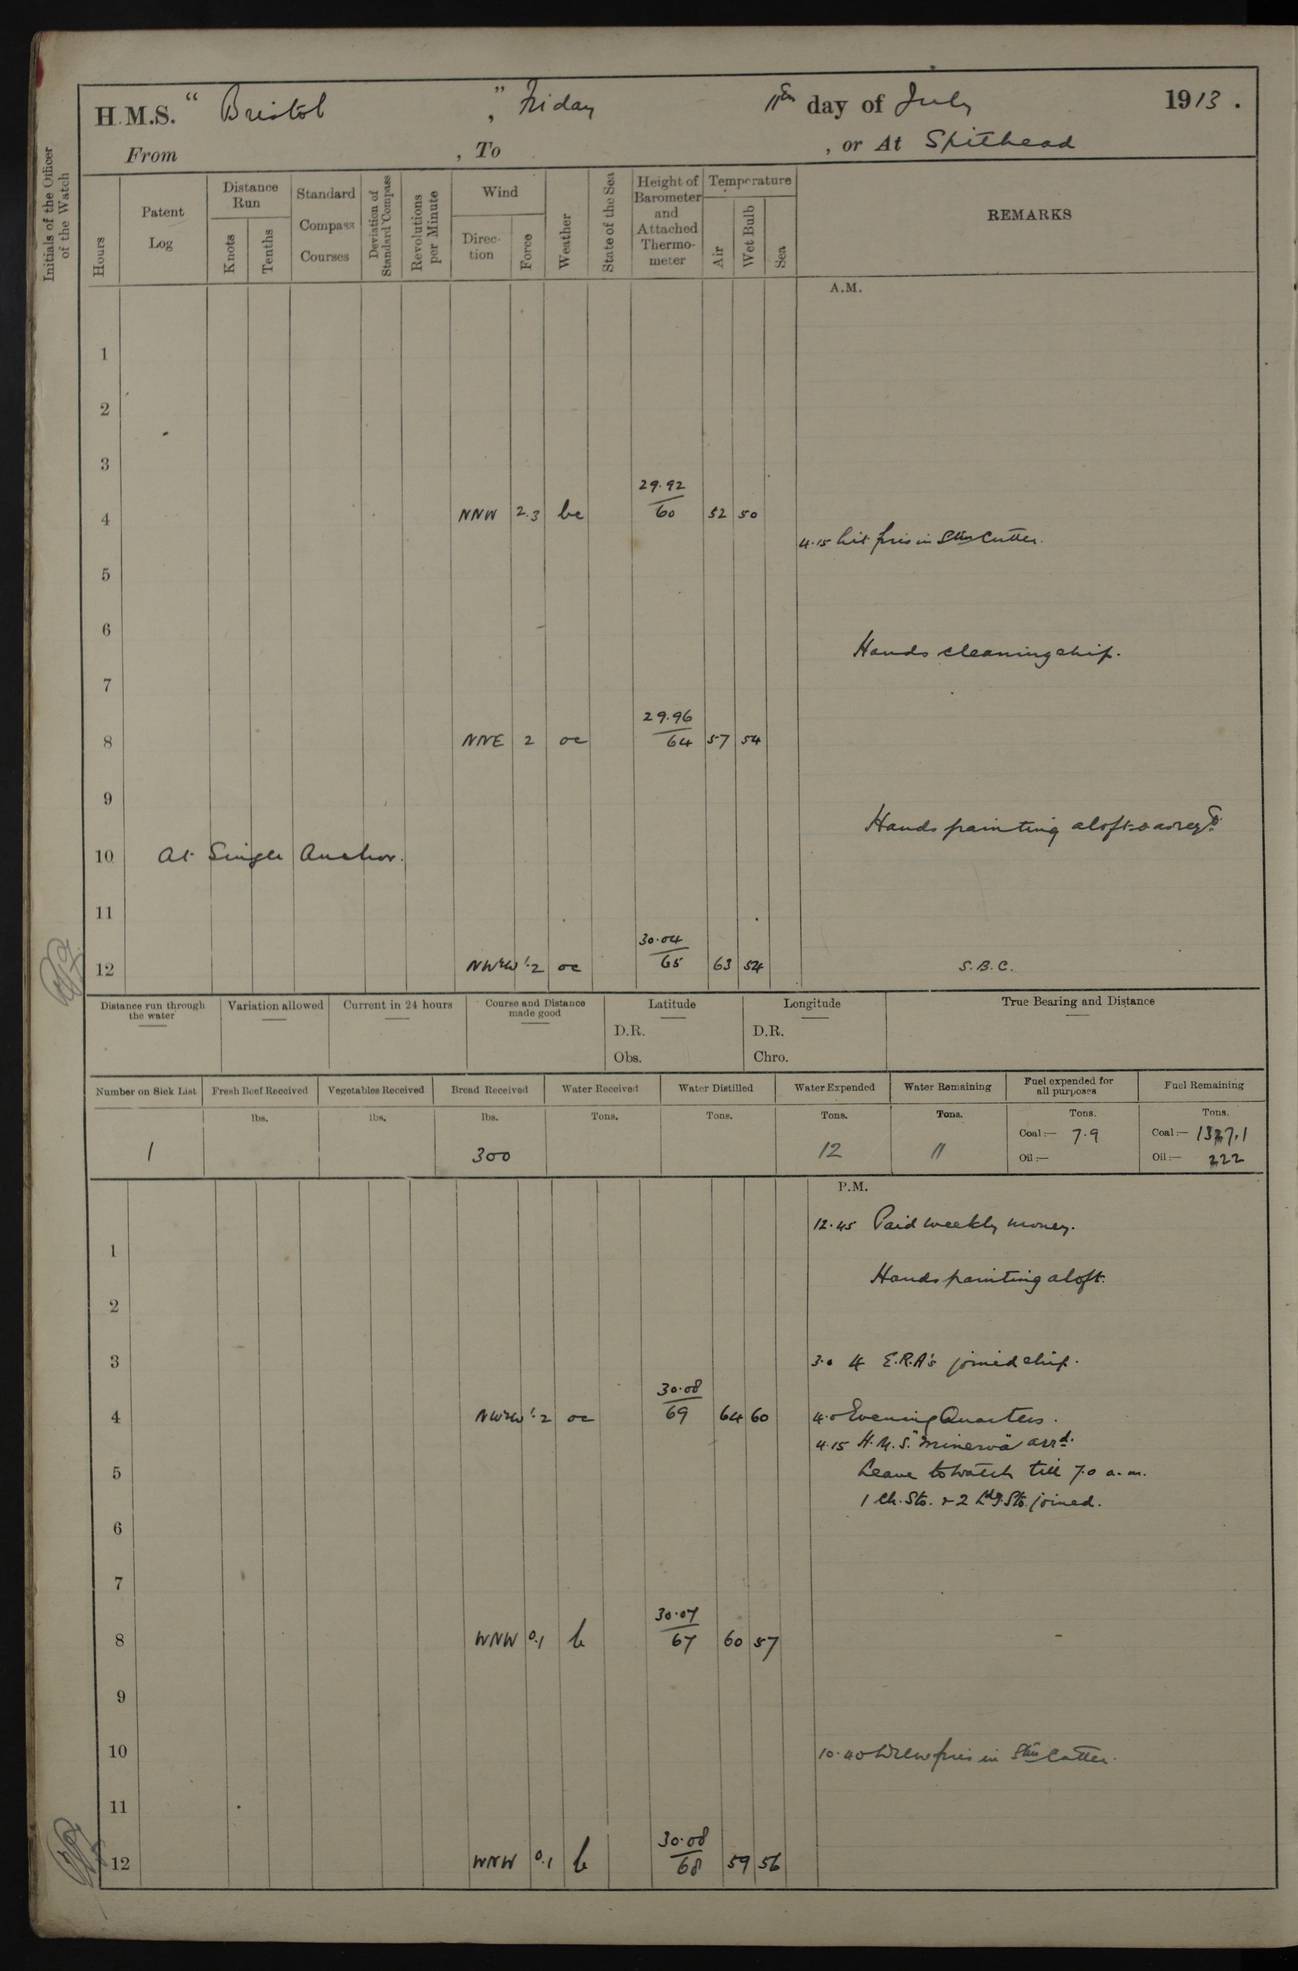 H.M.S. “ Bristol ” , Friday 11th day of July 1913 .
From , To , or At Spithead
Initials of the Officer of the Watch
Hours
Patent Log
Distance Run
Knots
Tenths
Standard Compass Courses
Deviation of Standard Compass
Revolutions per Minute
Wind
Direc-tion
Force
Weather
State of the Sea
Height of Barometer and Attached Thermo-meter
Temperature
Air
Wet Bulb
Sea
REMARKS
A.M.
1
2
3
4 NNW 2.3 bc 29.92/60 52 50
4.15 Lit fires in Stm Cutter.
5
6
Hands cleaning ship.
7
8 NNE 2 oc 29.96/64 57 54
9
Hands painting aloft & as reqd.
10 At Single Anchor.
11
12 NWxW 1.2 oc 30.04/65 63 54 S.B.C.
Distance run through the water
Variation allowed
Current in 24 hours
Course and Distance made good
Latitude
D.R.
Obs.
Longitude
D.R.
Chro.
True Bearing and Distance
Number on Sick List Fresh Beef Received Vegetables Received Bread Received Water Received Water Distilled Water Expended Water Remaining Fuel expended for all purposes Fuel Remaining
lbs. lbs. lbs. Tons. Tons. Tons. Tons. Tons. Tons.
1 300 12 11 Coal:— 7.9 Coal:— 1327.1
Oil:— Oil:— 222
P.M.
12.45 Paid weekly money.
1
Hands painting aloft.
2
3 3.0 4 E.R.A's joined ship.
4 NWxW 1.2 oc 30.08/69 64 60 4.0 Evening Quarters.
4.15 H.M.S. "Minerva" arrd.
5 Leave to watch till 7.0 a.m.
1 Ch. Sto. & 2 Ldg. Sto. joined.
6
7
8 WNW 0.1 b 30.07/67 60 57
9
10 10.40 Drew fires in Stm Cutter.
11
12 WNW 0.1 b 30.08/68 59 56